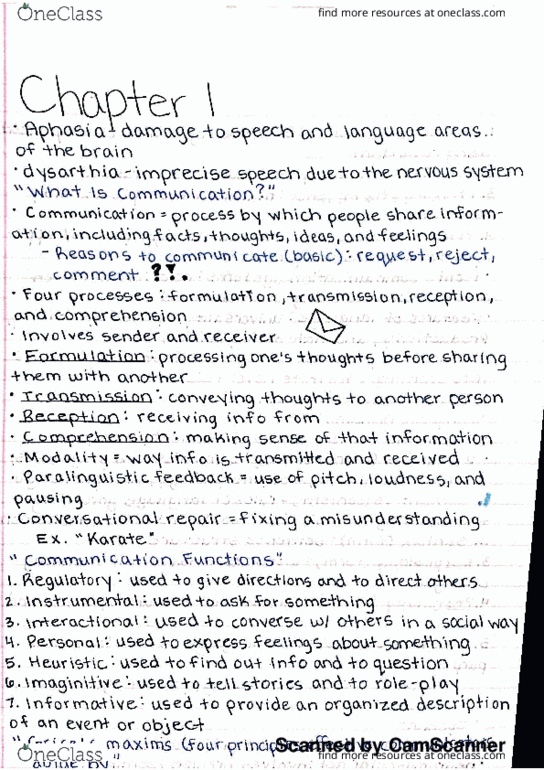 OneClass
find more resources at oneclass.com
Chapter 1
· Aphasia - damage to speech and language areas
of the brain
· dysarthia - imprecise speech due to the nervous system
"What is Communication?"
· Communication = process by which people share inform-
ation, including facts, thoughts, ideas, and feelings
- Reasons to communicate (basic): request, reject,
comment ?!.
· Four processes: formulation, transmission, reception,
and comprehension
· Involves sender and receiver
· Formulation: processing one's thoughts before sharing
them with another
· Transmission: conveying thoughts to another person
· Reception: receiving info from
· Comprehension: making sense of that information
· Modality = way info is transmitted and received
· Paralinguistic feedback = use of pitch, loudness, and
pausing
· Conversational repair = fixing a misunderstanding
Ex. "Karate"
"Communication Functions"
1. Regulatory: used to give directions and to direct others
2. Instrumental: used to ask for something
3. Interactional: used to converse w/ others in a social way
4. Personal: used to express feelings about something
5. Heuristic: used to find out info and to question
6. Imaginitive: used to tell stories and to role-play
7. Informative: used to provide an organized description
of an event or object
maxims (four
Scanned by CamScanner
OneClass
find more resources at oneclass.com